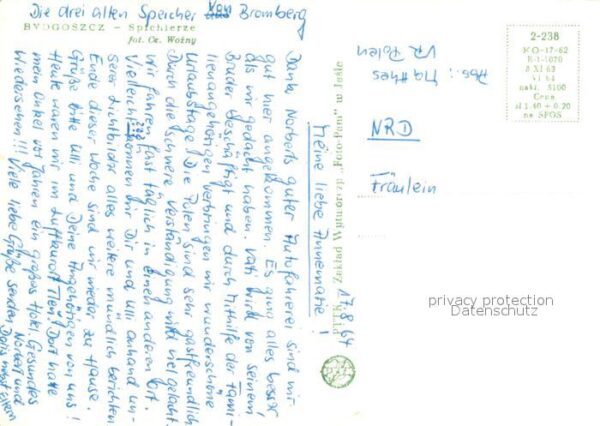 Die drei alten Speicher von Bromberg
BYDGOSZCZ – Spichlerze
fot. Cz. Woźny
17.8.64
Meine liebe Annemarie!
Dank Norberts guter Autofahrerei sind wir
gut hier angekommen. Es ging alles besser
als wir gedacht haben. Vati wird von seinem
Bruder beschäftigt und durch Mithilfe der Fami-
lienangehörigen verbringen wir wunderschöne
Urlaubstage. Die Polen sind sehr gastfreundlich
Durch die schwere Verständigung wird viel gelacht.
Wir fahren fast täglich in einen anderen Ort.
Vielleicht können wir Dir und Ulli anhand un-
serer Lichtbilder alles weitere mündlich berichten
Ende dieser Woche sind wir wieder zu Hause.
Grüße bitte Ulli und Deine Angehörigen von uns!
Heute waren wir im Luftkurort Tleń. Dort hatte
mein Onkel vor Jahren ein großes Hotel. Gesundes
Wiedersehen!!! Viele liebe Grüße senden Norbert und
Doris nebst Eltern
PTTK Zakład Wytwórczy „Foto-Pam" w Jaśle
Abs.: Matthes
VR Polen
NRD
Fräulein
2-238
KO-17-62
K-1-1070
8 XI 63
VI 64
nakł. 5100
Cena
zł 1.40 + 0.20
na SFOS
privacy protection
Datenschutz